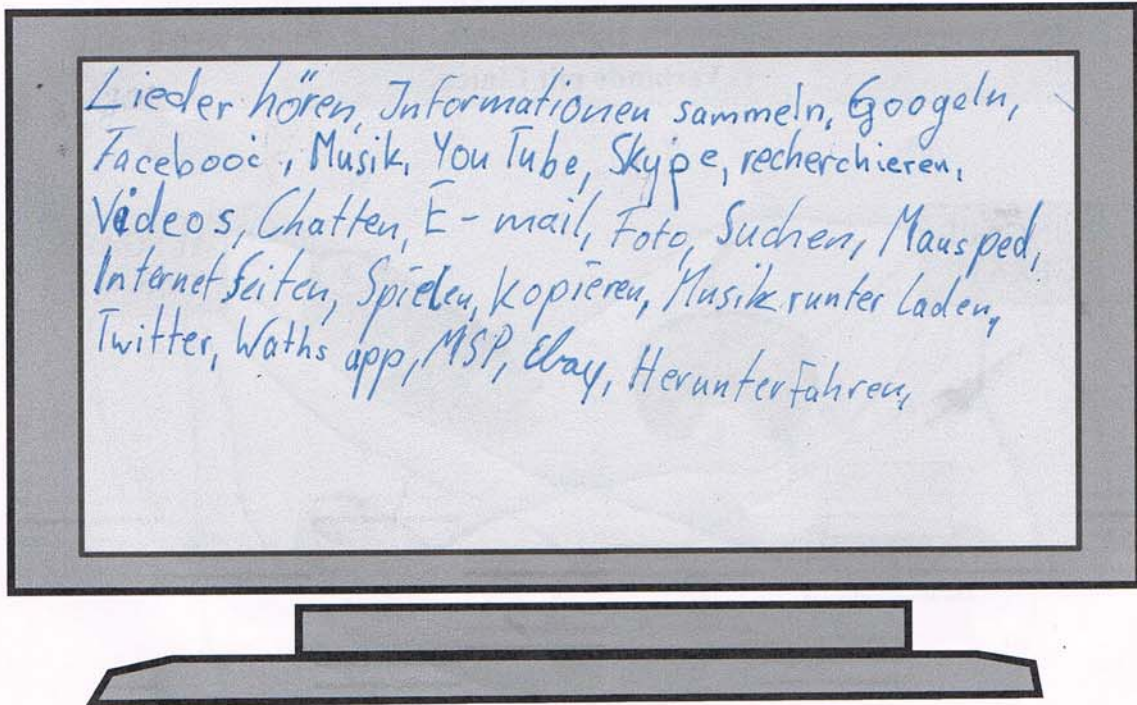 Lieder hören, Informationen sammeln, Googeln,
Facebooi, Musik, YouTube, Skype, recherchieren,
Videos, Chatten, E-mail, Foto, Suchen, Mausped,
Internetseiten, Spielen, kopieren, Musik runter laden,
Twitter, Waths app, MSP, Ebay, Herunterfahren,